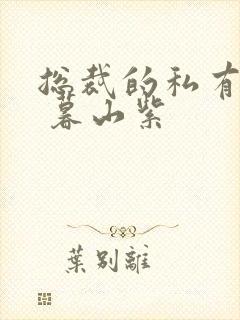 总裁的私有
暮山紫
葉別離